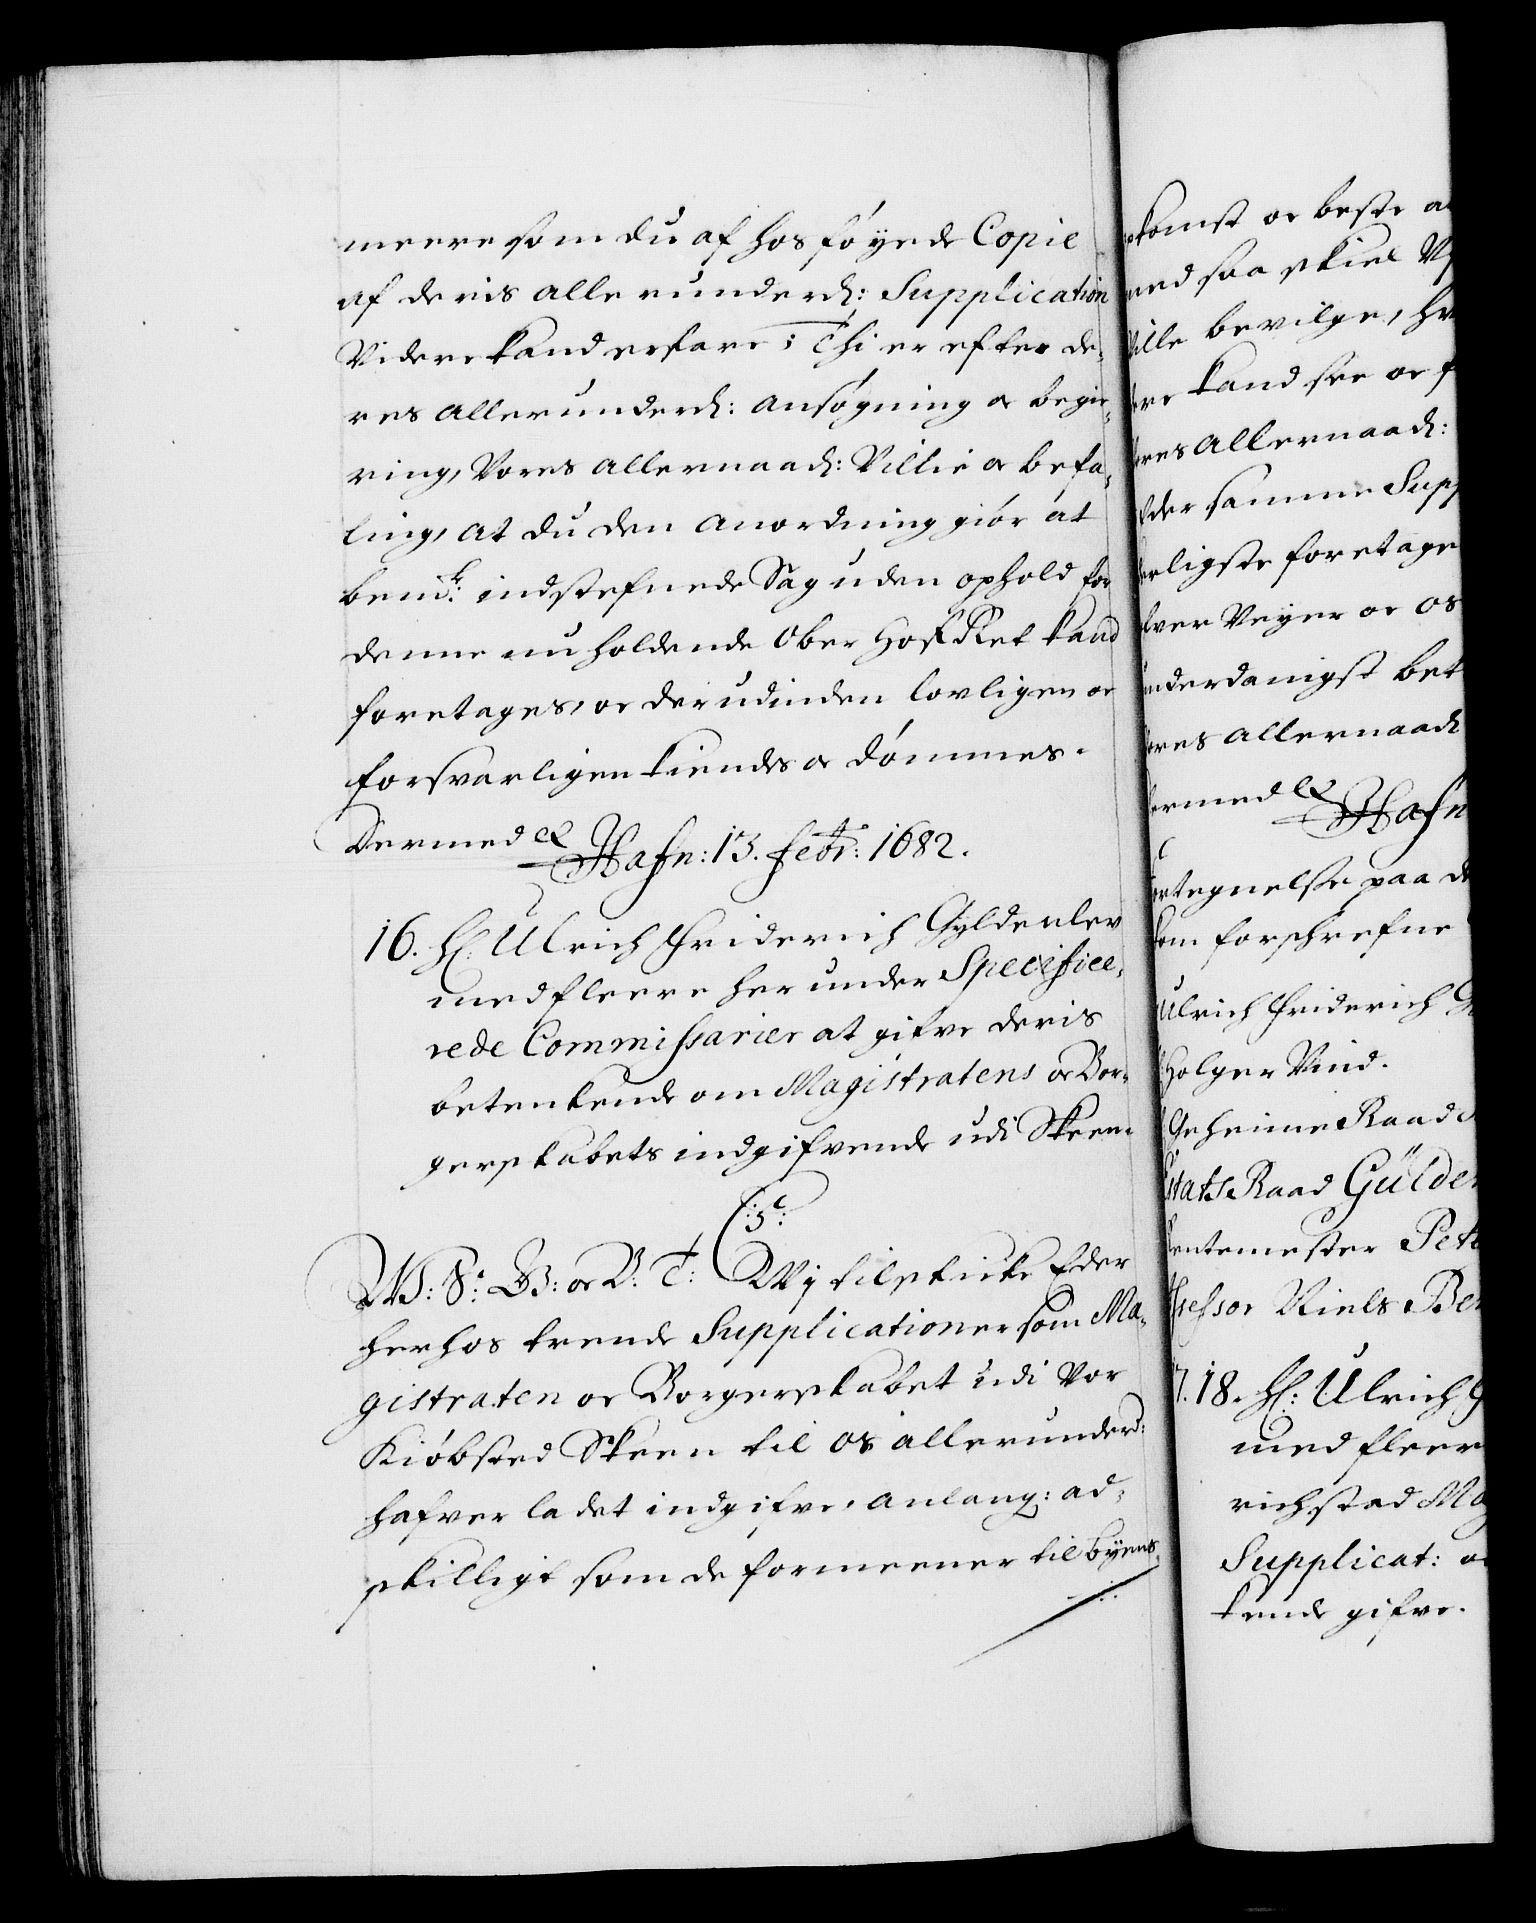 meere som du af hos föyede Copie
af deris allerunderd: Supplication
Videre kand erfare; Thi er efter de-
res allerunderd: ansögning oc begie-
ring, Vores allernaad: Villie oc befa-
ling, at du den anordning giör at
bem:te indstefnede Sag uden ophold for
denne nu holdende Ober Hof Ret kand
foretages, oc der udinden lovligen oc
forsvarligen kiendes oc dömmes.
Dermed &
Hafn: 13. febr: 1682.
16. H: Ulrich Friderich Gyldenlev
med fleere her under Specifice-
rede Commissarier at gifve deris
betenkende om Magistratens oc Bor-
gerskabets indgifvende udi Skeen.
C: 5:
W: S: B: oc V: T: Wy tilskicke Eder
herhos trende Supplicationer som Ma-
gistraten oc Borgerskabet udi Vor
Kiöbsted Skeen til os allerunderd:
hafver ladet indgifve, anlang: ad-
skilligt som de formeener til byens
komst oc beste
med saa skiel
Ville bevilge,
kand see oc
Vores Allernaad:
Eder samme Supp
foretage
over Veyer oc os
underdanigst bet
Vores allernaad
Dermed &
Hafn
Fortegnelse paa
som forschrefne
Ulrich Friderich G
Holger Vind.
Geheime Raad
Etats Raad Gülden
Rentemester Pet
Assessor Niels Ben
17. 18. H: Ulrich G
med fleer
richstad Mag
Supplicat: oc
kende gifve.